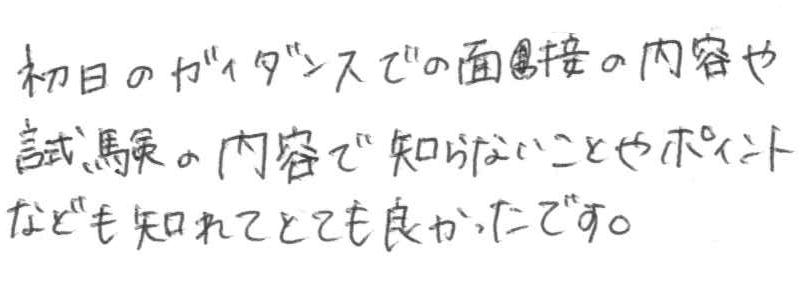 初日のガイダンスでの面接の内容や
試験の内容で知らないことやポイント
なども知れてとても良かったです。